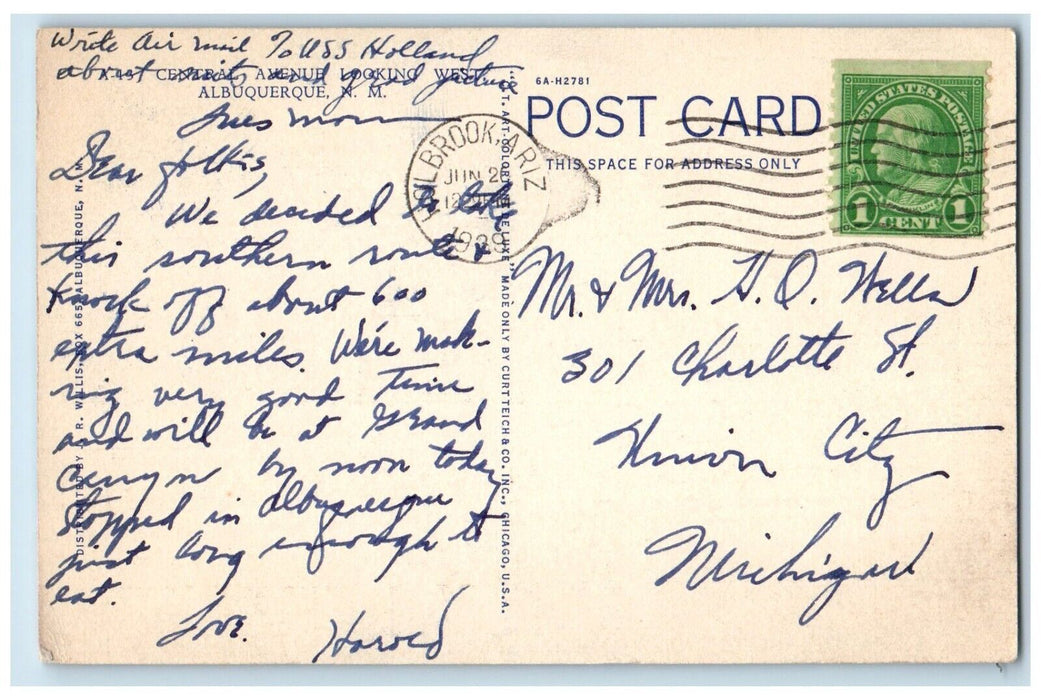 Write Air mail To USS Holland
about and good
A-49 CENTRAL AVENUE LOOKING WEST,
ALBUQUERQUE, N. M.
Tues morn
Dear folks,
We decided to take
this southern route &
knock off about 600
extra miles. We're mak-
ing very good time
and will be at Grand
Canyon by noon today
Stopped in Albuquerque
just long enough to
eat.
Love.
Harold
DISTRIBUTED BY J. R. WILLIS, BOX 665, ALBUQUERQUE, N. M.
"C.T. ART-COLORTONE" MADE ONLY BY CURT TEICH & CO., INC., CHICAGO, U.S.A.
6A-H2781
POST CARD
THIS SPACE FOR ADDRESS ONLY
HOLBROOK, ARIZ
JUN 2
1939
UNITED STATES POSTAGE
1 CENT 1
Mr. & Mrs. H. O. Wells
301 Charlotte St.
Union City
Michigan